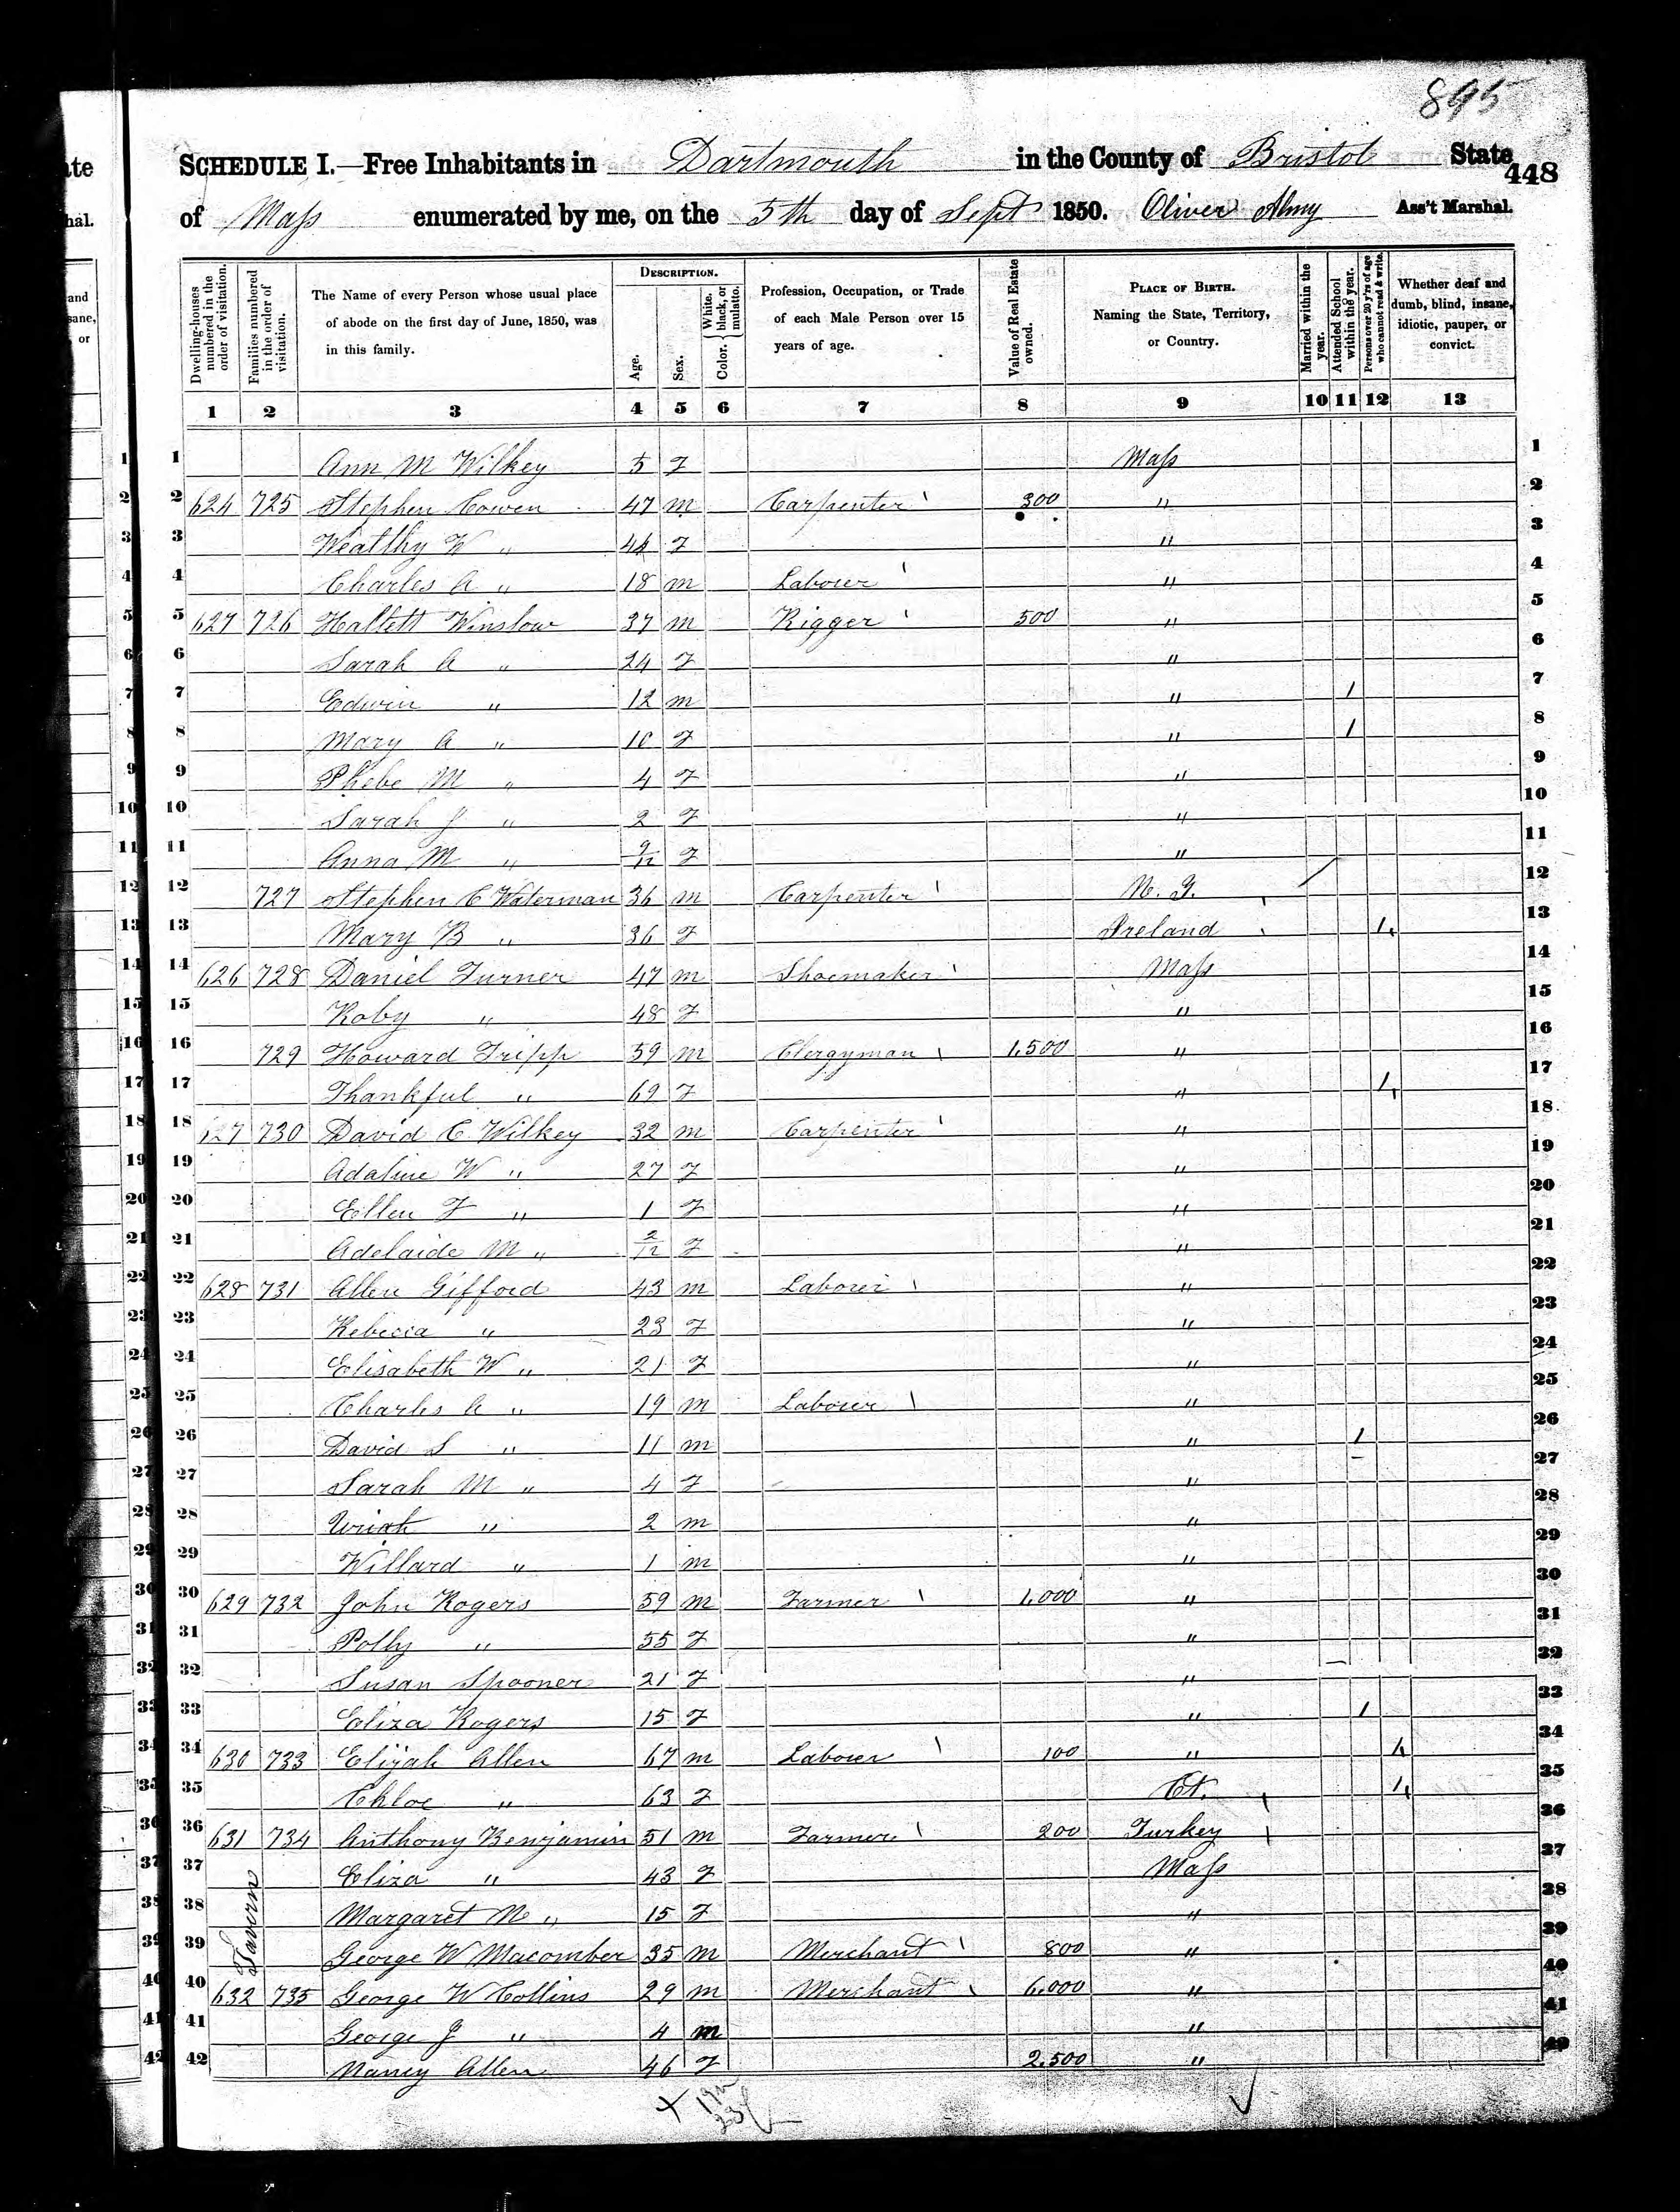 895
SCHEDULE I.—Free Inhabitants in Dartmouth in the County of Bristol State
448
of Mass enumerated by me, on the 5th day of Sept 1850. Oliver Almy Ass't Marshal.
Dwelling-houses numbered in the order of visitation.
Families numbered in the order of visitation.
The Name of every Person whose usual place of abode on the first day of June, 1850, was in this family.
DESCRIPTION.
Age.
Sex.
Color. { White, black, or mulatto.
Profession, Occupation, or Trade of each Male Person over 15 years of age.
Value of Real Estate owned.
PLACE OF BIRTH. Naming the State, Territory, or Country.
Married within the year.
Attended School within the year.
Persons over 20 y'rs of age who cannot read & write.
Whether deaf and dumb, blind, insane, idiotic, pauper, or convict.
1 2 3 4 5 6 7 8 9 10 11 12 13
1 Ann M Wilkey 5 F Mass 1
2 624 725 Stephen Cowen 47 m Carpenter 300 " 2
3 Wealthy W " 44 F " 3
4 Charles A " 18 m Laborer " 4
5 627 726 Hallett Winslow 37 m Rigger 500 " 5
6 Sarah A " 24 F " 6
7 Edwin " 12 m " 1 7
8 Mary A " 10 F " 1 8
9 Phebe M " 4 F " 9
10 Sarah J " 2 F " 10
11 Anna M " 9/12 F " 11
12 727 Stephen C Waterman 36 m Carpenter N. Y. 12
13 Mary B " 36 F Ireland 1 13
14 626 728 Daniel Turner 47 m Shoemaker Mass 14
15 Roby " 48 F " 15
16 729 Howard Tripp 59 m Clergyman 1,500 " 16
17 Thankful " 69 F " 1 17
18 627 730 David C Wilkey 32 m Carpenter " 18
19 Adaline W " 27 F " 19
20 Ellen F " 1 F " 20
21 Adelaide M " 2/12 F " 21
22 628 731 Allen Gifford 43 m Laborer " 22
23 Rebecca " 23 F " 23
24 Elisabeth W " 21 F " 24
25 Charles A " 19 m Laborer " 25
26 David S " 11 m " 1 26
27 Sarah M " 4 F " 27
28 Uriah " 2 m " 28
29 Willard " 1 m " 29
30 629 732 John Rogers 59 m Farmer 1,000 " 30
31 Polly " 55 F " 31
32 Susan Spooner 21 F " 32
33 Eliza Rogers 15 F " 1 33
34 630 733 Elijah Allen 67 m Laborer 100 " 1 34
35 Chloe " 63 F Ct. 1 35
36 631 734 Anthony Benjamin 51 m Farmer 200 Turkey 36
37 Eliza " 43 F Mass 37
38 Margaret N " 15 F " 38
39 Tavern George W Macomber 35 m Merchant 800 " 39
40 632 735 George W Collins 29 m Merchant 6,000 " 40
41 George J " 4 m " 41
42 Nancy Allen 46 F 2,500 " 42